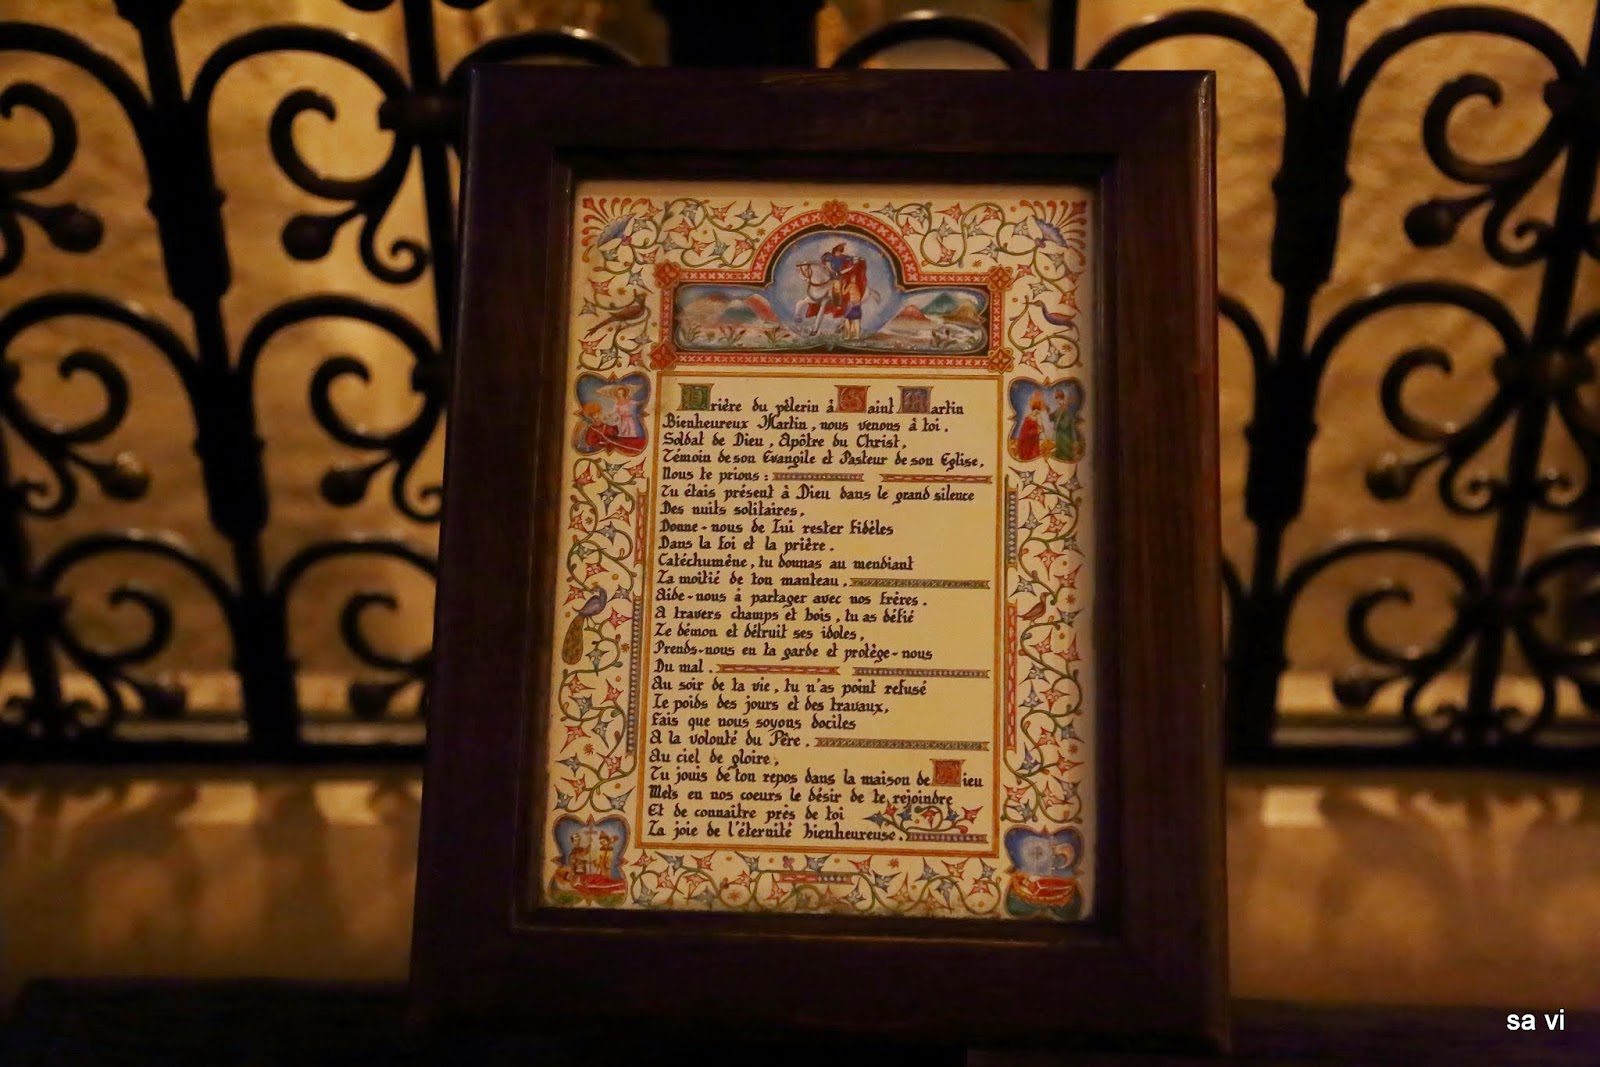 Prière du pèlerin à Saint Martin
Bienheureux Martin, nous venons à toi.
Soldat de Dieu, Apôtre du Christ,
Témoin de son Evangile et Pasteur de son Eglise,
Nous te prions :
Tu étais présent à Dieu dans le grand silence
Des nuits solitaires,
Donne-nous de Lui rester fidèles
Dans la foi et la prière.
Catéchumène, tu donnas au mendiant
La moitié de ton manteau,
Aide-nous à partager avec nos frères.
A travers champs et bois, tu as défié
Le démon et détruit ses idoles,
Prends-nous en ta garde et protège-nous
Du mal.
Au soir de ta vie, tu n'as point refusé
Le poids des jours et des travaux,
Fais que nous soyons dociles
A la volonté du Père.
Au ciel de gloire,
Tu jouis de ton repos dans la maison de Dieu
Mets en nos coeurs le désir de te rejoindre
Et de connaître près de toi
La joie de l'éternité bienheureuse.
sa vi